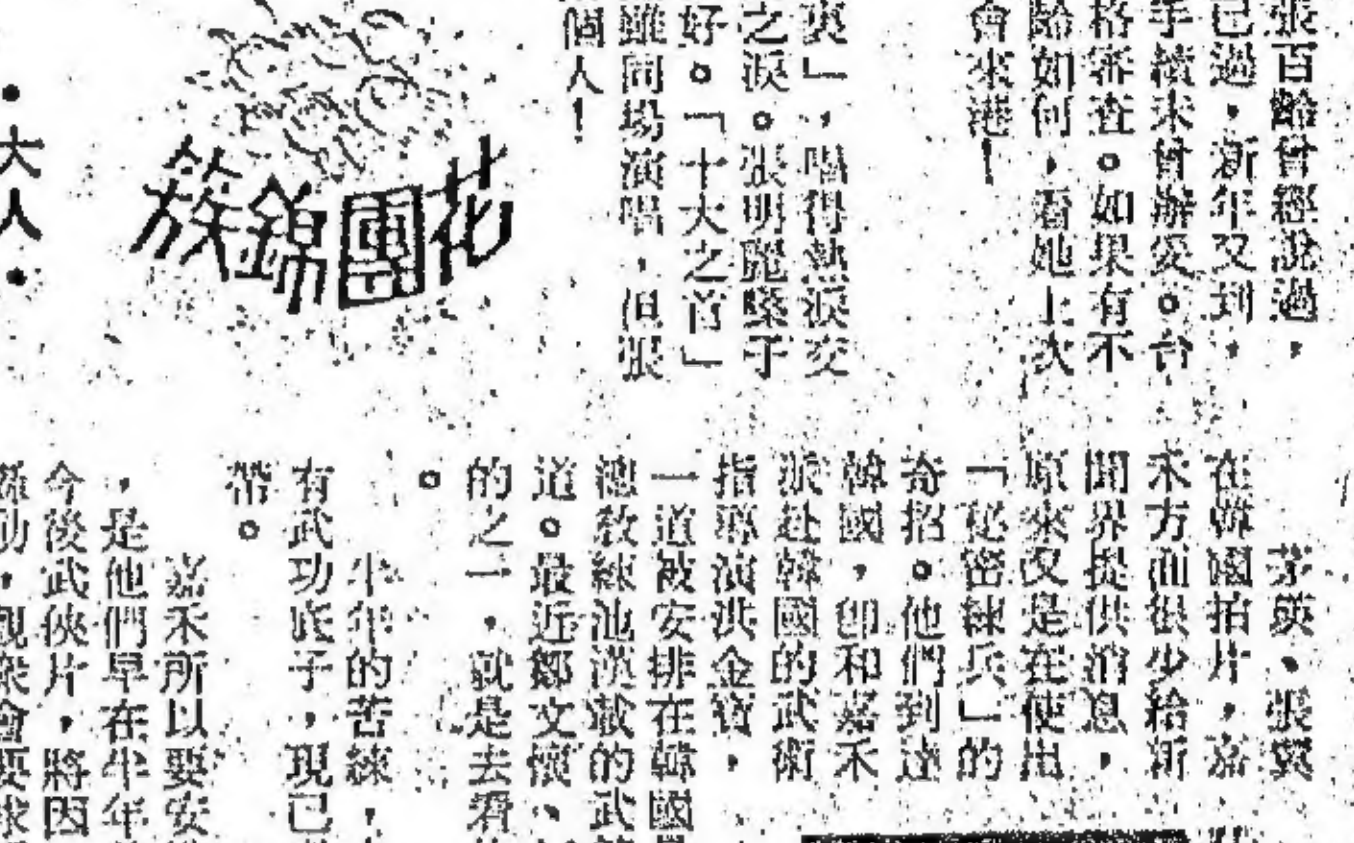 張百齡曾經說過，
已過，新年又到，
手續未曾辦妥。台
格審查。如果有不
齡如何，看她上次
會來港！
爽」，唱得熱淚交
之淚。張明麗緊于
好。「十大之首」
雖同場演唱，但張
個人！
花團錦簇
•大人•
茅瑛、張翼
在韓國拍片，嘉
禾方面很少給新
聞界提供消息，
原來又是在使出
「秘密練兵」的
奇招。他們到達
韓國，即和嘉禾
派赴韓國的武術
指導演洪金寶，
一道被安排在韓國
總教練池漢載的武
道。最近鄒文懷、
的之一，就是去看
。
半年的苦練，
有武功底子，現已
帶。
嘉禾所以要安
，是他們早在半年
今後武俠片，將因
，觀衆會要求